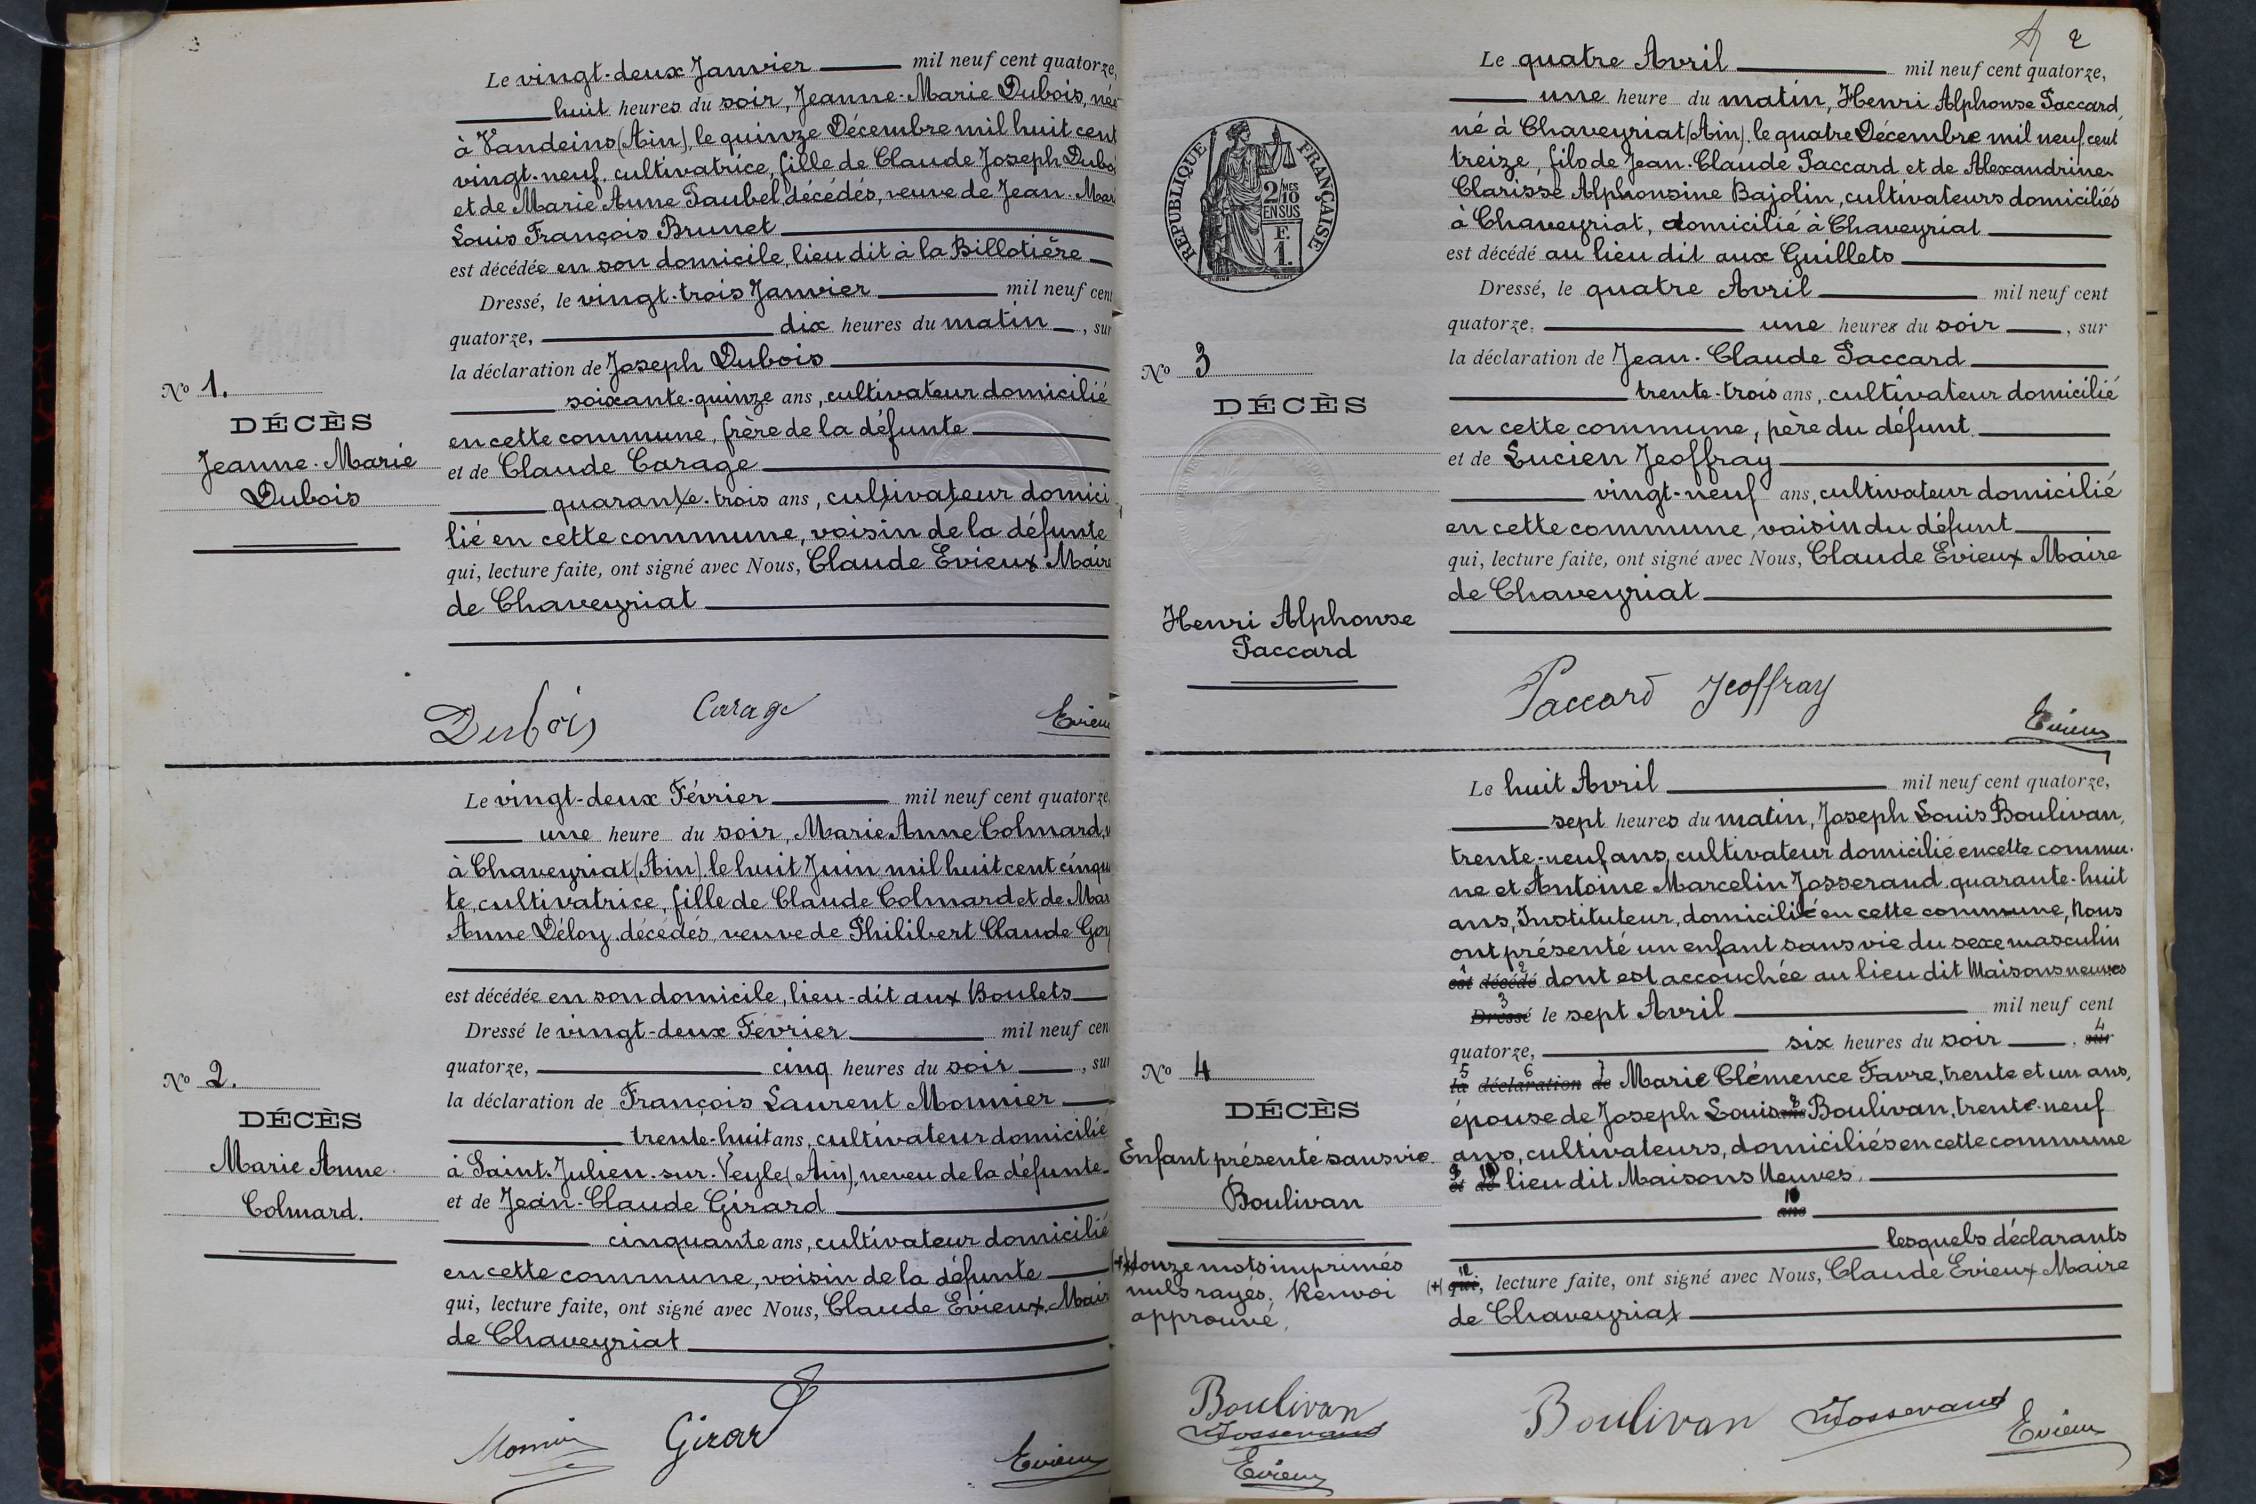 Le vingt-deux Janvier mil neuf cent quatorze,
huit heures du soir, Jeanne-Marie Dubois, née
à Vandeins (Ain), le quinze Décembre mil huit cent
vingt-neuf, cultivatrice, fille de Claude Joseph Dubo
et de Marie Anne Paubel, décédés, veuve de Jean-Mar
Louis François Brunet
est décédée en son domicile, lieu dit à la Billotière
Dressé, le vingt-trois Janvier mil neuf cent
quatorze, dix heures du matin, sur
la déclaration de Joseph Dubois
soixante-quinze ans, cultivateur domicilié
en cette commune, frère de la défunte
et de Claude Carage
quarante-trois ans, cultivateur domici
lié en cette commune, voisin de la défunte
qui, lecture faite, ont signé avec Nous, Claude Evieux Maire
de Chaveyriat
No 1.
DÉCÈS
Jeanne-Marie
Dubois
Dubois Carage Evieux
Le vingt-deux Février mil neuf cent quatorze,
une heure du soir, Marie Anne Colmard,
à Chaveyriat (Ain) le huit Juin mil huit cent cinqu
te, cultivatrice, fille de Claude Colmard et de Mar
Anne Déloy, décédés, veuve de Philibert Claude Goy
est décédée en son domicile, lieu-dit aux Boulets
Dressé le vingt-deux Février mil neuf cen
quatorze, cinq heures du soir, sur
la déclaration de François Laurent Monnier
trente-huit ans, cultivateur domicilié
à Saint-Julien-sur-Veyle (Ain), neveu de la défunte
et de Jean-Claude Girard
cinquante ans, cultivateur domicilié
en cette commune, voisin de la défunte
qui, lecture faite, ont signé avec Nous, Claude Evieux, Mair
de Chaveyriat
No 2.
DÉCÈS
Marie Anne
Colmard.
Monnier Girard Evieux
2
Le quatre Avril mil neuf cent quatorze,
une heure du matin, Henri Alphonse Paccard,
né à Chaveyriat (Ain), le quatre Décembre mil neuf cent
treize, fils de Jean-Claude Paccard et de Alexandrine
Clarisse Alphonsine Bajolin, cultivateurs domiciliés
à Chaveyriat, domicilié à Chaveyriat
est décédé au lieu dit aux Guillets
Dressé, le quatre Avril mil neuf cent
quatorze, une heures du soir, sur
la déclaration de Jean-Claude Paccard
trente-trois ans, cultivateur domicilié
en cette commune, père du défunt
et de Lucien Jeoffray
vingt-neuf ans, cultivateur domicilié
en cette commune, voisin du défunt
qui, lecture faite, ont signé avec Nous, Claude Evieux Maire
de Chaveyriat
RÉPUBLIQUE FRANÇAISE
2/10 MES
EN SUS
F.
1.
No 3
DÉCÈS
Henri Alphonse
Paccard
Paccard Jeoffray Evieux
Le huit Avril mil neuf cent quatorze,
sept heures du matin, Joseph Louis Boulivan,
trente-neuf ans, cultivateur domicilié en cette commu-
ne et Antoine Marcelin Josserand quarante-huit
ans, Instituteur, domicilié en cette commune, Nous
ont présenté un enfant sans vie du sexe masculin
1 2
est décédé dont est accouchée au lieu dit Maisons neuves
3
Dressé le sept Avril mil neuf cent
4
quatorze, six heures du soir, sur
5 6 7
la déclaration de Marie Clémence Favre, trente et un ans,
8
épouse de Joseph Louis ans Boulivan, trente-neuf
ans, cultivateurs, domiciliés en cette commune
9 10
et de lieu dit Maisons Neuves.
ans
lesquels déclarants
12
(+) qui, lecture faite, ont signé avec Nous, Claude Evieux Maire
de Chaveyriat
No 4
DÉCÈS
Enfant présenté sans vie
Boulivan
(+) douze mots imprimés
nuls rayés. Renvoi
approuvé.
Boulivan
Josserand
Evieux
Boulivan Josserand Evieux